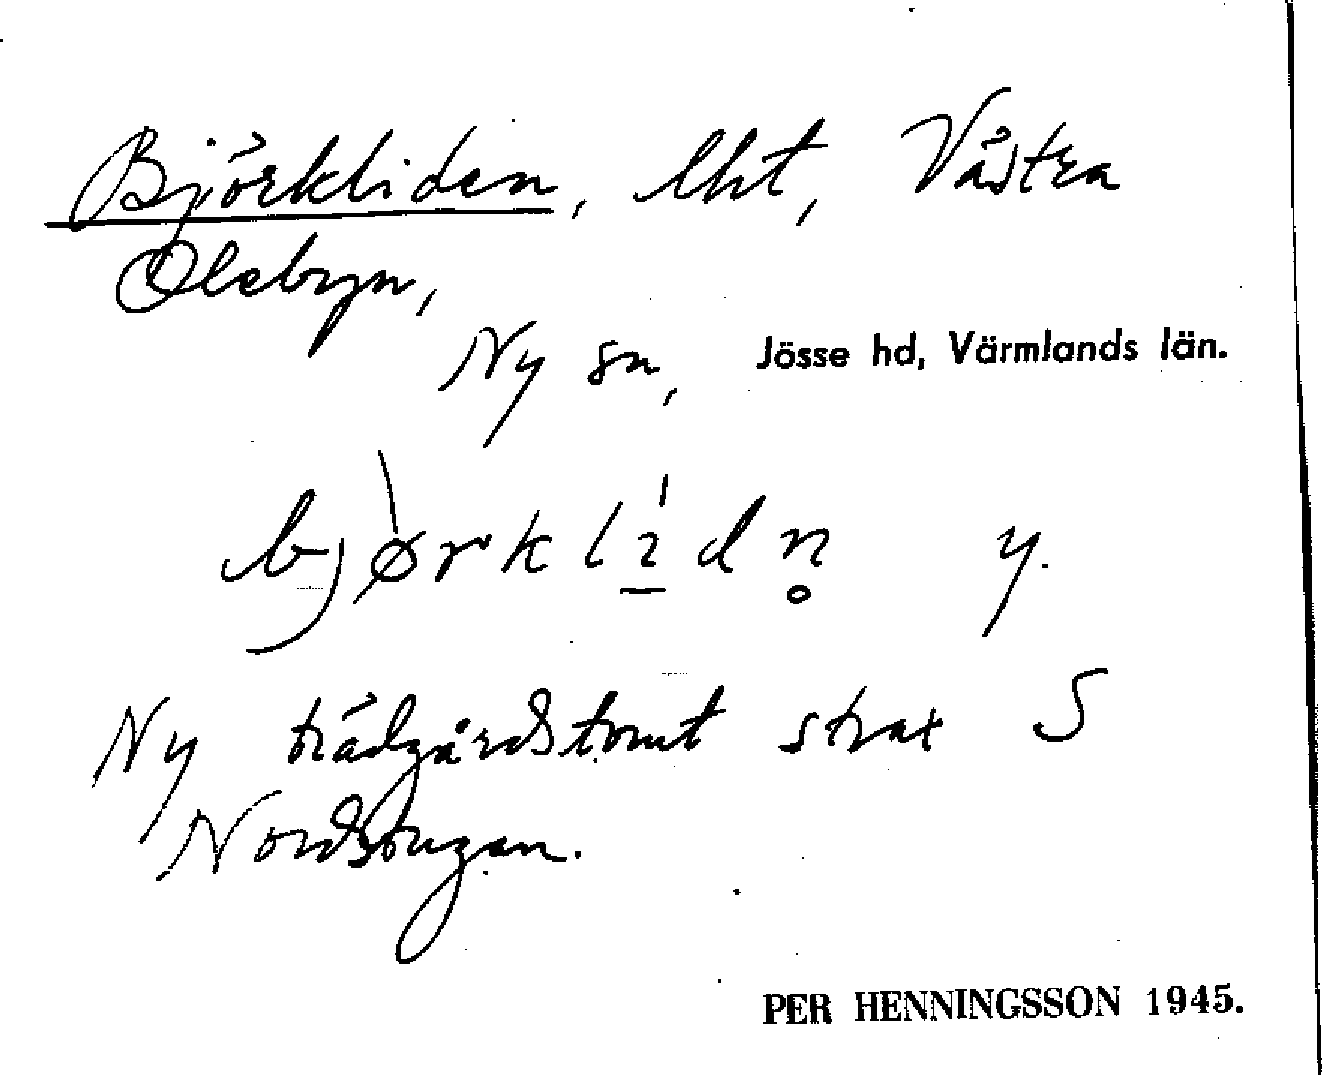 Björkliden, lht, Västra
Olebyn,
Ny sn, Jösse hd, Värmlands län.
bjø̀rklı̱́dn̥ y.
Ny trädgårdstomt strax S
Nordstugan.
PER HENNINGSSON 1945.